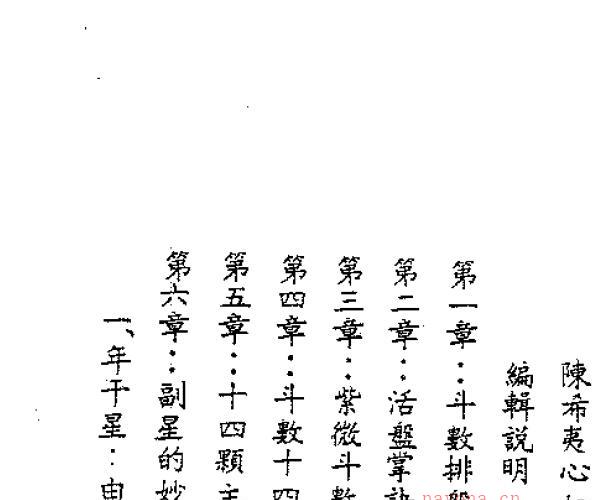 陳希夷心
編輯説明
第一章：斗數排
第二章：活盤掌訣
第三章：紫微斗數
第四章：斗數十四
第五章：十四顆主
第六章：副星的妙
一、年干星：由